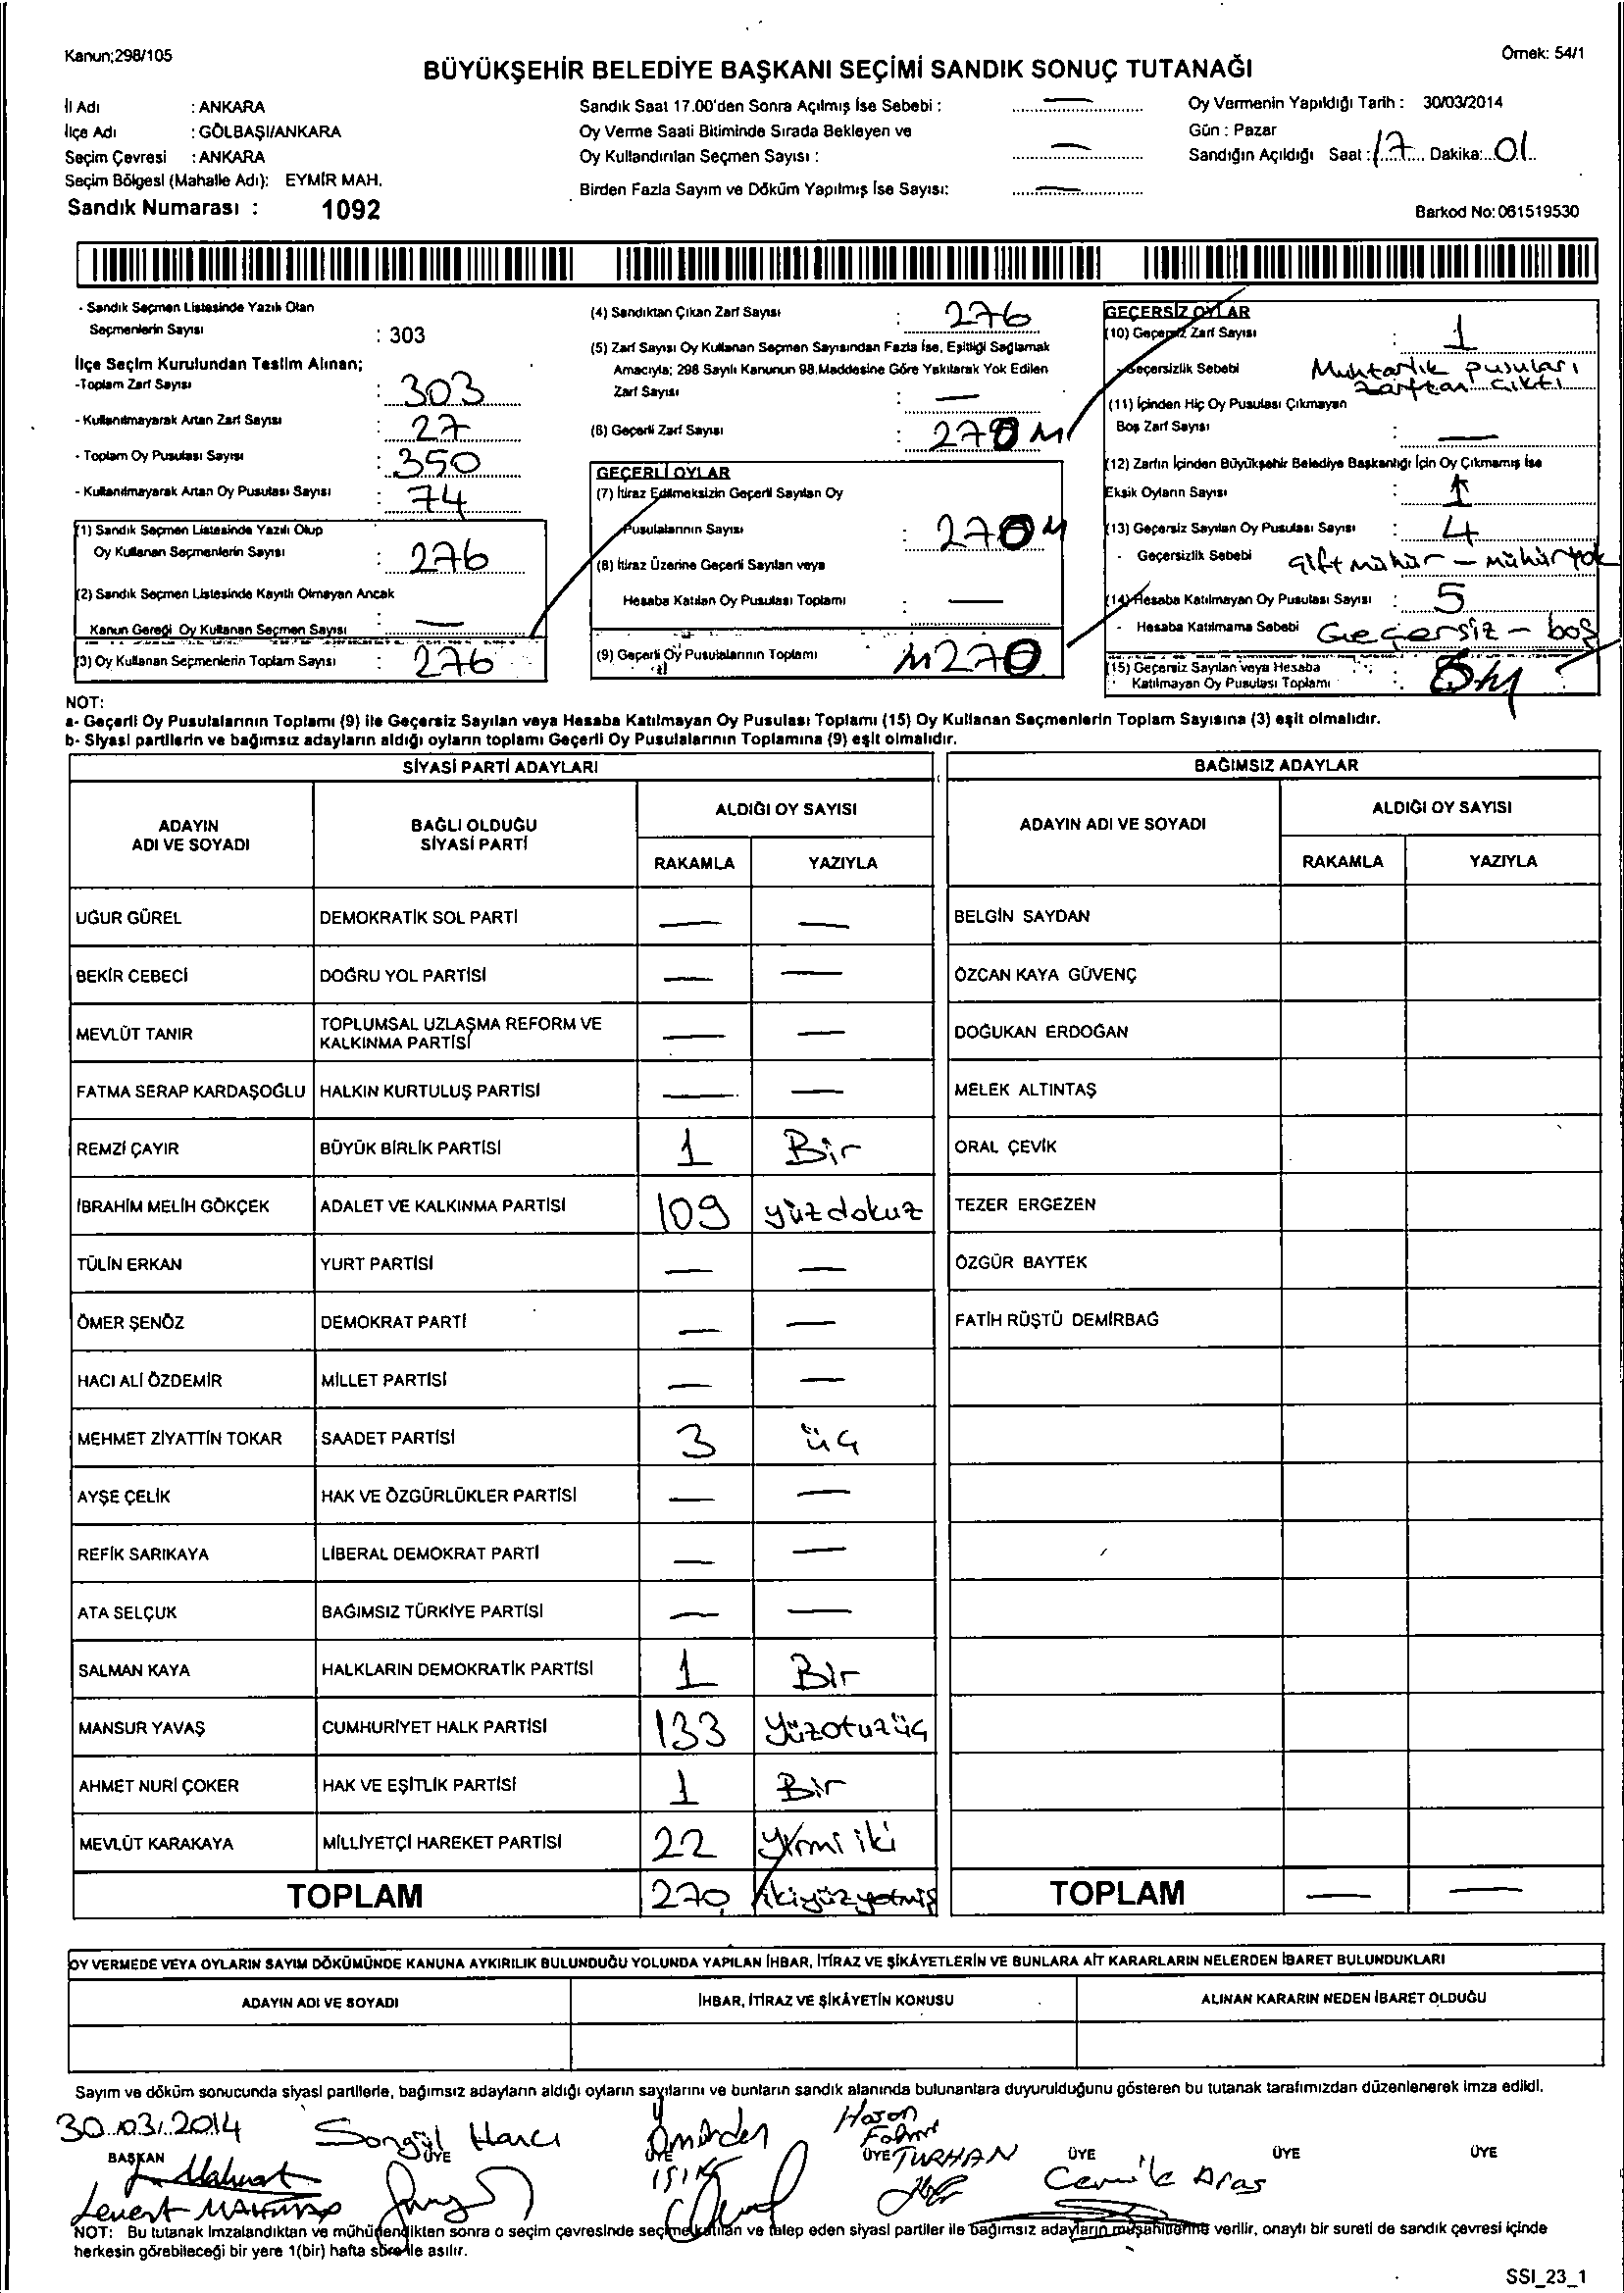 Kanun;298/105
Örnek: 54/1
BÜYÜKŞEHİR BELEDİYE BAŞKANI SEÇİMİ SANDIK SONUÇ TUTANAĞI
İl Adı : ANKARA
İlçe Adı : GÖLBAŞI/ANKARA
Seçim Çevresi : ANKARA
Seçim Bölgesi (Mahalle Adı): EYMİR MAH.
Sandık Numarası : 1092
Sandık Saat 17.00'den Sonra Açılmış İse Sebebi : —
Oy Verme Saati Bitiminde Sırada Bekleyen ve
Oy Kullandırılan Seçmen Sayısı : —
Birden Fazla Sayım ve Döküm Yapılmış İse Sayısı: —
Oy Vermenin Yapıldığı Tarih : 30/03/2014
Gün : Pazar
Sandığın Açıldığı Saat : 17 Dakika: 01
Barkod No: 061519530
- Sandık Seçmen Listesinde Yazılı Olan
Seçmenlerin Sayısı : 303
İlçe Seçim Kurulundan Teslim Alınan;
-Toplam Zarf Sayısı : 303
- Kullanılmayarak Artan Zarf Sayısı : 27
- Toplam Oy Pusulası Sayısı : 350
- Kullanılmayarak Artan Oy Pusulası Sayısı : 74
(1) Sandık Seçmen Listesinde Yazılı Olup
Oy Kullanan Seçmenlerin Sayısı : 276
(2) Sandık Seçmen Listesinde Kayıtlı Olmayan Ancak
Kanun Gereği Oy Kullanan Seçmen Sayısı : —
(3) Oy Kullanan Seçmenlerin Toplam Sayısı : 276
(4) Sandıktan Çıkan Zarf Sayısı : 276
(5) Zarf Sayısı Oy Kullanan Seçmen Sayısından Fazla İse, Eşitliği Sağlamak
Amacıyla; 298 Sayılı Kanunun 98.Maddesine Göre Yakılarak Yok Edilen
Zarf Sayısı : —
(6) Geçerli Zarf Sayısı :
GEÇERLİ OYLAR
(7) İtiraz Edilmeksizin Geçerli Sayılan Oy
Pusulalarının Sayısı : 270
(8) İtiraz Üzerine Geçerli Sayılan veya
Hesaba Katılan Oy Pusulası Toplamı : —
(9) Geçerli Oy Pusulalarının Toplamı : 270
GEÇERSİZ OYLAR
(10) Geçersiz Zarf Sayısı : 1
- Geçersizlik Sebebi Muhtarlık pusuları
zarftan çıktı
(11) İçinden Hiç Oy Pusulası Çıkmayan
Boş Zarf Sayısı : —
(12) Zarfın İçinden Büyükşehir Belediye Başkanlığı İçin Oy Çıkmamış İse
Eksik Oyların Sayısı : 1
(13) Geçersiz Sayılan Oy Pusulası Sayısı : 4
- Geçersizlik Sebebi çift mühür – mühür yok
(14) Hesaba Katılmayan Oy Pusulası Sayısı : 5
- Hesaba Katılmama Sebebi Geçersiz – boş
(15) Geçersiz Sayılan veya Hesaba
Katılmayan Oy Pusulası Toplamı :
NOT:
a- Geçerli Oy Pusulalarının Toplamı (9) ile Geçersiz Sayılan veya Hesaba Katılmayan Oy Pusulası Toplamı (15) Oy Kullanan Seçmenlerin Toplam Sayısına (3) eşit olmalıdır.
b- Siyasi partilerin ve bağımsız adayların aldığı oyların toplamı Geçerli Oy Pusulalarının Toplamına (9) eşit olmalıdır.
SİYASİ PARTİ ADAYLARI
ADAYIN ADI VE SOYADI BAĞLI OLDUĞU SİYASİ PARTİ ALDIĞI OY SAYISI
RAKAMLA YAZIYLA
UĞUR GÜREL DEMOKRATİK SOL PARTİ — —
BEKİR CEBECİ DOĞRU YOL PARTİSİ — —
MEVLÜT TANIR TOPLUMSAL UZLAŞMA REFORM VE KALKINMA PARTİSİ — —
FATMA SERAP KARDAŞOĞLU HALKIN KURTULUŞ PARTİSİ — —
REMZİ ÇAYIR BÜYÜK BİRLİK PARTİSİ 1 Bir
İBRAHİM MELİH GÖKÇEK ADALET VE KALKINMA PARTİSİ 109 yüzdokuz
TÜLİN ERKAN YURT PARTİSİ — —
ÖMER ŞENÖZ DEMOKRAT PARTİ — —
HACI ALİ ÖZDEMİR MİLLET PARTİSİ — —
MEHMET ZİYATTİN TOKAR SAADET PARTİSİ 3 üç
AYŞE ÇELİK HAK VE ÖZGÜRLÜKLER PARTİSİ — —
REFİK SARIKAYA LİBERAL DEMOKRAT PARTİ — —
ATA SELÇUK BAĞIMSIZ TÜRKİYE PARTİSİ — —
SALMAN KAYA HALKLARIN DEMOKRATİK PARTİSİ 1 Bir
MANSUR YAVAŞ CUMHURİYET HALK PARTİSİ 133 Yüzotuzüç
AHMET NURİ ÇOKER HAK VE EŞİTLİK PARTİSİ 1 Bir
MEVLÜT KARAKAYA MİLLİYETÇİ HAREKET PARTİSİ 22 Yirmi iki
TOPLAM 270 ikiyüzyetmiş
BAĞIMSIZ ADAYLAR
ADAYIN ADI VE SOYADI ALDIĞI OY SAYISI
RAKAMLA YAZIYLA
BELGİN SAYDAN
ÖZCAN KAYA GÜVENÇ
DOĞUKAN ERDOĞAN
MELEK ALTINTAŞ
ORAL ÇEVİK
TEZER ERGEZEN
ÖZGÜR BAYTEK
FATİH RÜŞTÜ DEMİRBAĞ
TOPLAM — —
OY VERMEDE VEYA OYLARIN SAYIM DÖKÜMÜNDE KANUNA AYKIRILIK BULUNDUĞU YOLUNDA YAPILAN İHBAR, İTİRAZ VE ŞİKÂYETLERİN VE BUNLARA AİT KARARLARIN NELERDEN İBARET BULUNDUKLARI
ADAYIN ADI VE SOYADI İHBAR, İTİRAZ VE ŞİKÂYETİN KONUSU ALINAN KARARIN NEDEN İBARET OLDUĞU
Sayım ve döküm sonucunda siyasi partilerle, bağımsız adayların aldığı oyların sayılarını ve bunların sandık alanında bulunanlara duyurulduğunu gösteren bu tutanak tarafımızdan düzenlenerek imza edildi.
30.03.2014 Songül Harcı Hasan
BAŞKAN ÜYE ÜYE ÜYE TURHAN ÜYE ÜYE ÜYE
Levent IŞIK Aras
NOT: Bu tutanak imzalandıktan ve mühürlendikten sonra o seçim çevresinde seçime katılan ve talep eden siyasi partiler ile bağımsız adayların müşahitlerine verilir, onaylı bir sureti de sandık çevresi içinde
herkesin görebileceği bir yere 1(bir) hafta süre ile asılır.
SSI_23_1